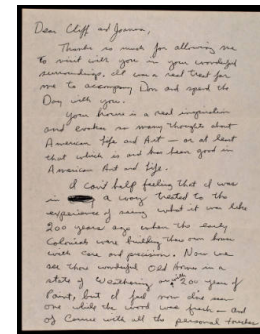 Dear Cliff and Joanna,
Thanks so much for allowing me
to visit with you in your wonderful
surroundings. It was a real treat for
me to accompany Don and spend the
Day with you.
Your home is a real inspiration
and evokes so many thoughts about
American Life and Art — or at least
that which is and has been good in
American Art and Life.
I can't help feeling that I was
in a way treated to the
experience of seeing what it was like
200 years ago when the early
Colonists were building their own homes
with care and precision. Now we
see these wonderful Old Homes in a
state of Weathering with 200 years of
Paint, but I feel now I've seen
one while the wood was fresh — and
of Course with all the personal touches